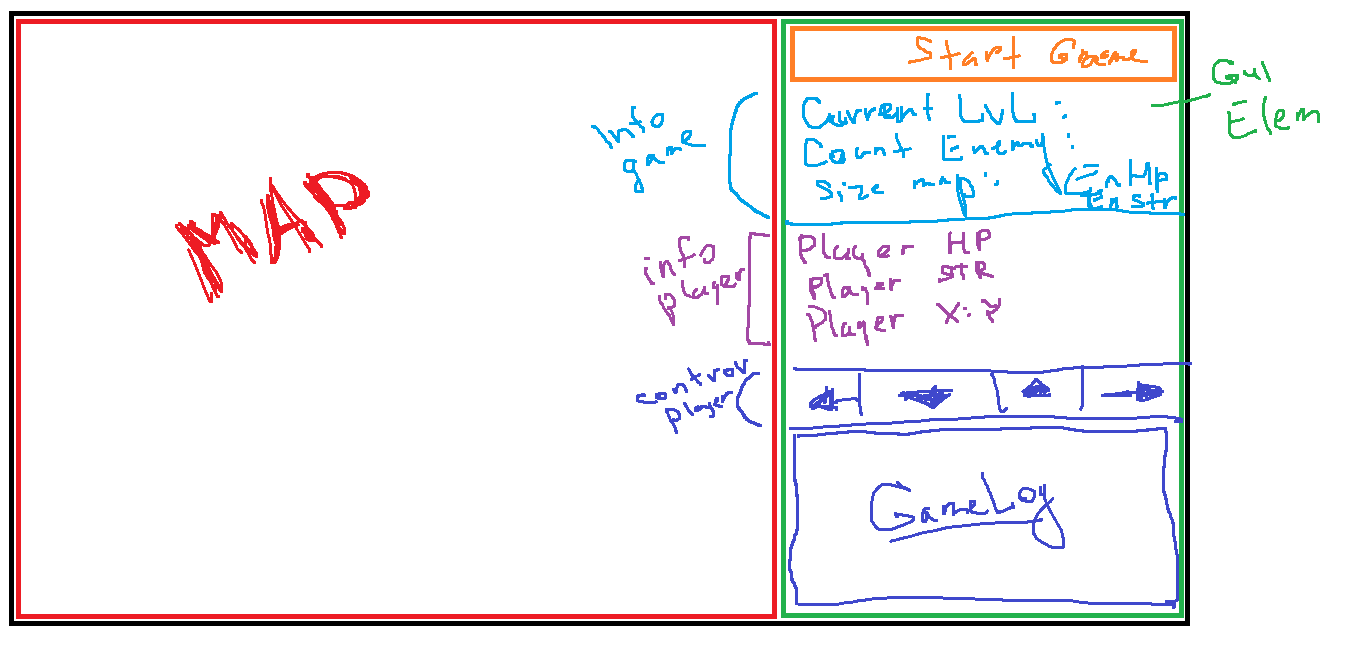 Start Game
Gui
Elem
Info
game
Current LvL :
Count Enemy :
Size map :
En Hp
En Str
MAP
info
player
Player HP
Player STR
Player X: Y
Control
player
GameLog